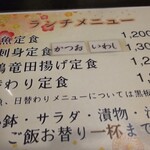 ランチメニュー
魚定食 1,200
刺身定食 かつお いわし 1,30
鶏竜田揚げ定食
替わり定食
、日替わりメニューについては黒板
小鉢・サラダ・漬物・
ご飯お替り一杯まで